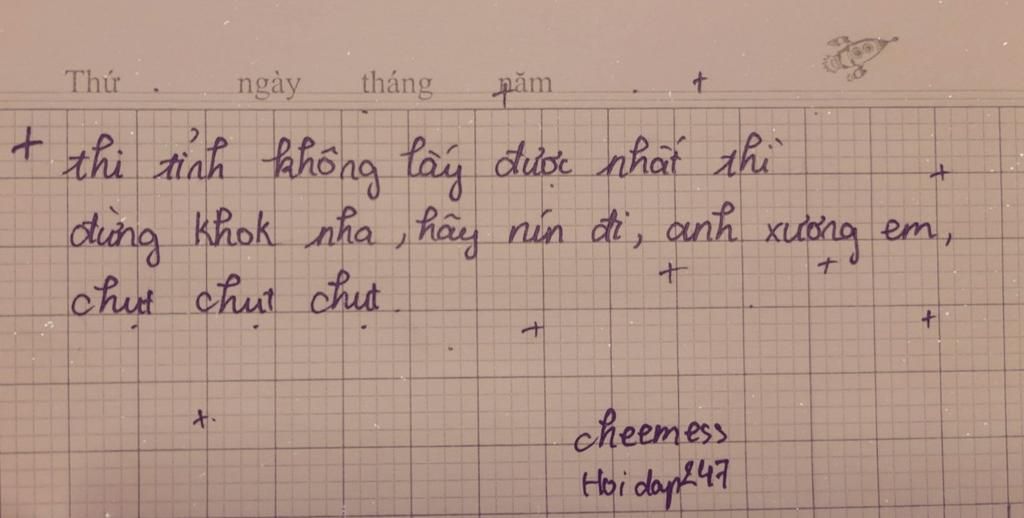 Thứ ngày tháng năm
thi tỉnh không lấy được nhất thì
đừng khok nha, hãy nín đi, anh xương em,
chụt chụt chụt.
cheemess
Hoidap247